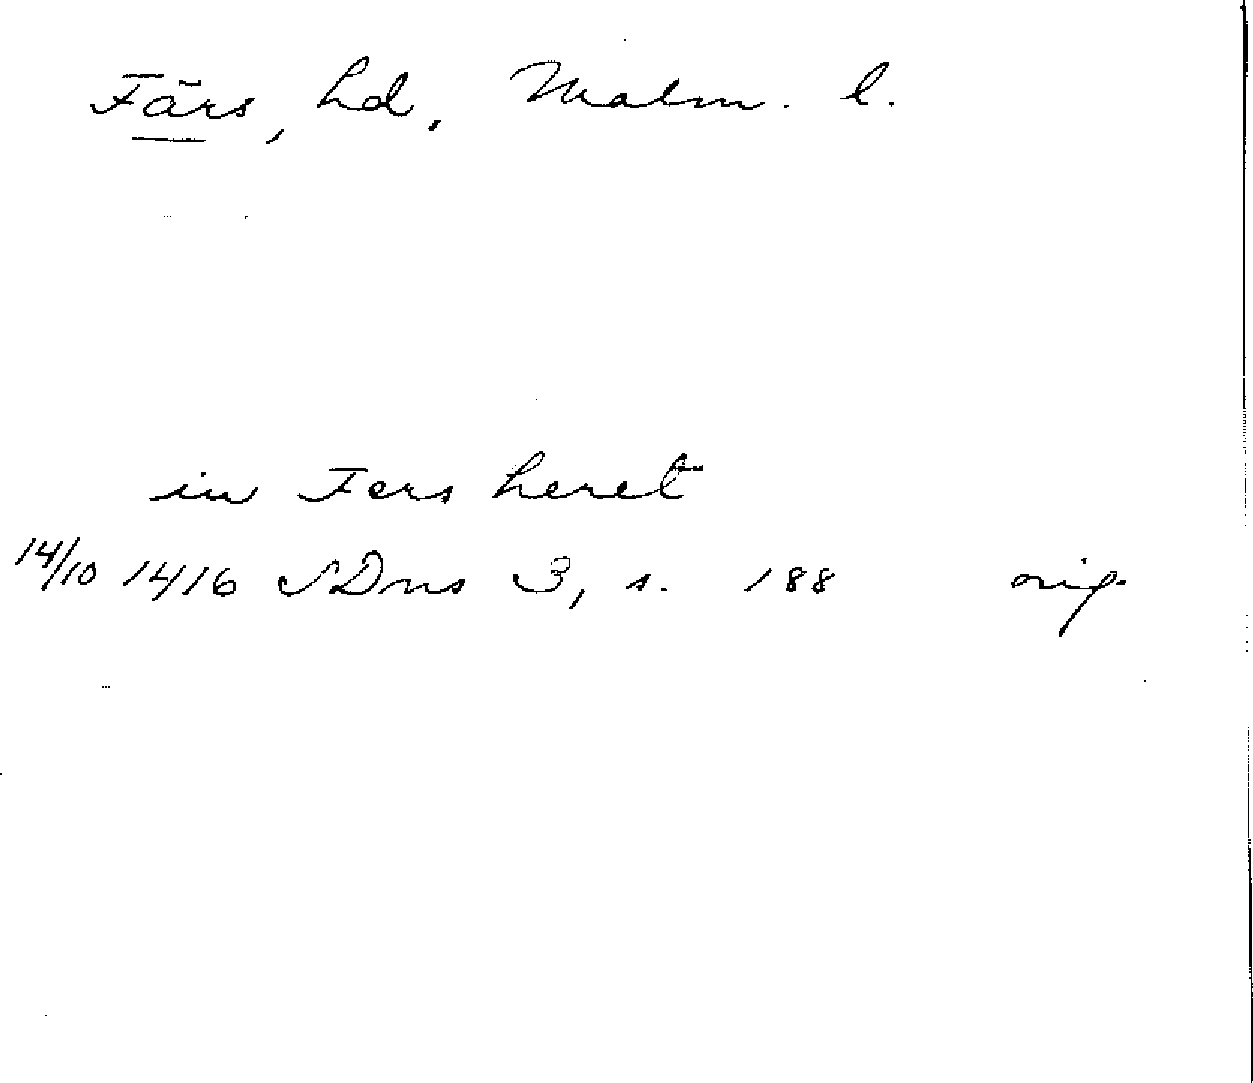 Färs, hd, Malm. l.
in Fers heret
14/10 1416 SDns 3, s. 188 orig.